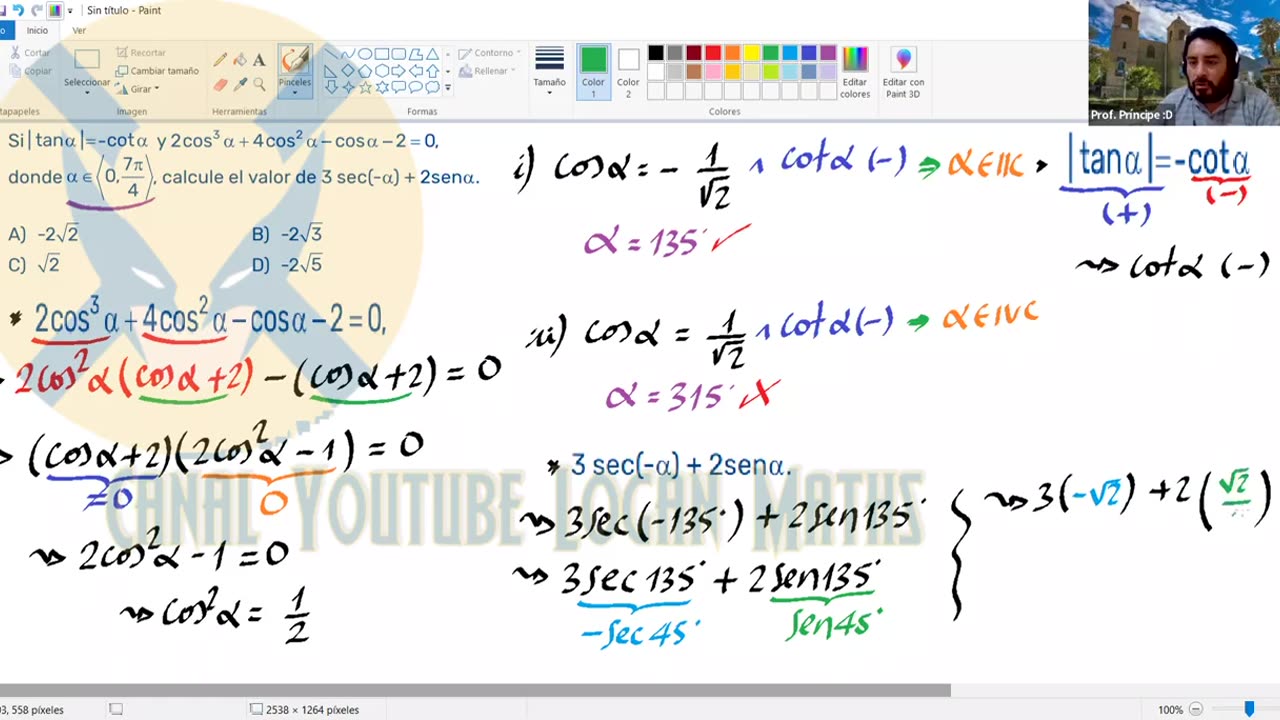 Sin título - Paint
Inicio Ver
Cortar
Copiar
Seleccionar
Recortar
Cambiar tamaño
Girar
Pinceles
Contorno
Rellenar
Tamaño
Color 1
Color 2
Editar colores
Editar con Paint 3D
tapapeles Imagen Herramientas Formas Colores
Prof. Príncipe :D
Si |tanα|=-cotα y 2cos³α+4cos²α-cosα-2=0,
donde α∈⟨0,7π/4⟩, calcule el valor de 3 sec(-α) + 2senα.
A) -2√2 B) -2√3
C) √2 D) -2√5
* 2cos³α+4cos²α-cosα-2=0,
2cos²α(cosα+2)-(cosα+2)=0
(cosα+2)(2cos²α-1)=0
≠0 0
2cos²α-1=0
cos²α=1/2
i) cosα=-1/√2 ∧ cotα(-) ⇒ α∈IIC
α=135° ✓
ii) cosα=1/√2 ∧ cotα(-) → α∈IVC
α=315° ✗
* 3 sec(-α) + 2senα.
3sec(-135°)+2sen135°
3sec135°+2sen135°
-sec45° sen45°
|tanα|=-cotα
(+) (-)
cotα (-)
3(-√2)+2(√2)
CANAL YOUTUBE LOGAN MATHS
03, 558 píxeles
2538 × 1264 píxeles
100%